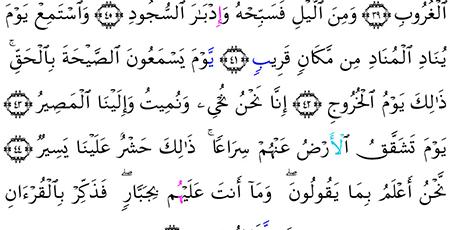 ٱلْغُرُوبِ ٣٩ وَمِنَ ٱلَّيْلِ فَسَبِّحْهُ وَإِدْبَٰرَ ٱلسُّجُودِ ٤٠ وَٱسْتَمِعْ يَوْمَ
يُنَادِ ٱلْمُنَادِ مِن مَّكَانٍ قَرِيبٍ ٤١ يَوْمَ يَسْمَعُونَ ٱلصَّيْحَةَ بِٱلْحَقِّ ۚ
ذَٰلِكَ يَوْمُ ٱلْخُرُوجِ ٤٢ إِنَّا نَحْنُ نُحْيِۦ وَنُمِيتُ وَإِلَيْنَا ٱلْمَصِيرُ ٤٣
يَوْمَ تَشَقَّقُ ٱلْأَرْضُ عَنْهُمْ سِرَاعًا ۚ ذَٰلِكَ حَشْرٌ عَلَيْنَا يَسِيرٌ ٤٤
نَّحْنُ أَعْلَمُ بِمَا يَقُولُونَ ۖ وَمَآ أَنتَ عَلَيْهُم بِجَبَّارٍ ۖ فَذَكِّرْ بِٱلْقُرْءَانِ